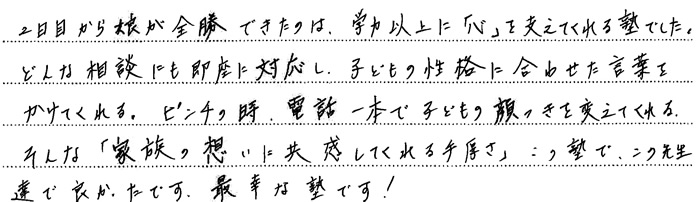 2日目から娘が全勝できたのは、学力以上に「心」を支えてくれる塾でした。
どんな相談にも即座に対応し、子どもの性格に合わせた言葉を
かけてくれる。ピンチの時、電話一本で子どもの顔つきを変えてくれる。
そんな「家族の想いに共感してくれる手厚さ」この塾で、この先生
達で良かったです。最幸な塾です!